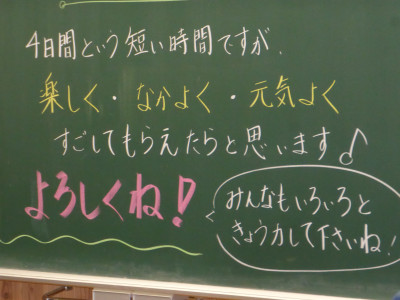 4日間という短い時間ですが、
楽しく・なかよく・元気よく
すごしてもらえたらと思います♪
よろしくね!
みんなもいろいろと
きょう力して下さいね!